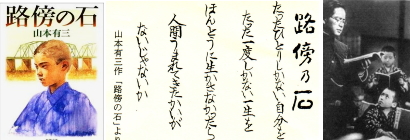 路傍の石
山本有三
路傍乃石
たったひとりしかない自分を
たった一度しかない一生を
ほんとうに生かさなかったら
人間うまれてきたかいが
ないじゃないか
山本有三作「路傍の石」より